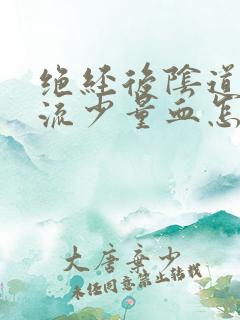 绝经后陰道
流少量血怎
大唐弃少
未经同意禁止转载